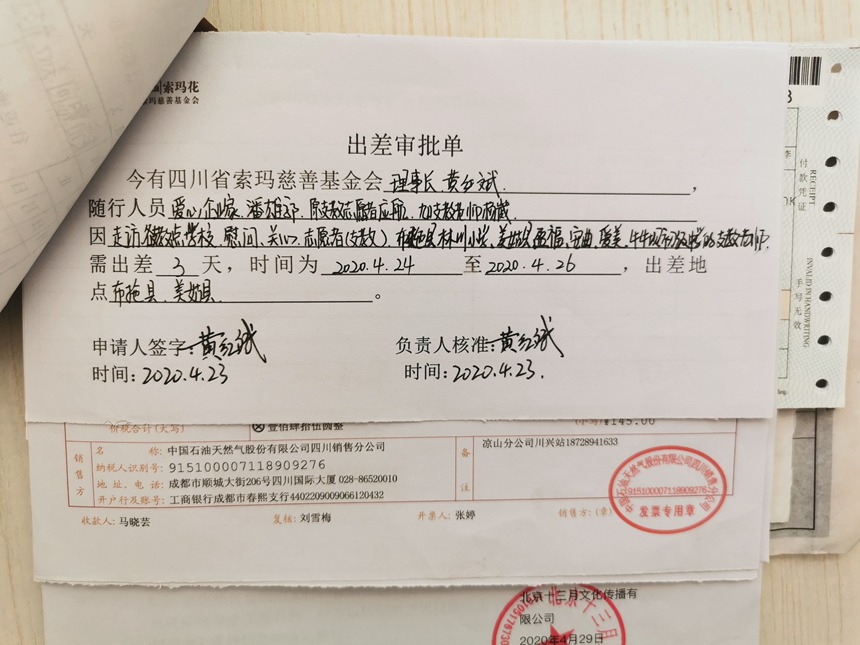 索玛花
玛慈善基金会
出差审批单
今有四川省索玛慈善基金会 理事长 黄红斌 ,
随行人员 爱心企业家、潘雄 、
因 走访 学校、慰问、关心、志愿者(支教)、
需出差 3 天,时间为 2020.4.24 至 2020.4.26 ,出差地
点 布拖县、美姑县 。
申请人签字: 黄红斌
负责人核准: 黄红斌
时间: 2020.4.23
时间: 2020.4.23.
付款凭证
RECEIPT
手写无效
INVALID IN HANDWRITING
价税合计(大写)
ⓧ壹佰肆拾伍圆整
(小写)¥145.00
销售方
名 称: 中国石油天然气股份有限公司四川销售分公司
纳税人识别号: 915100007118909276
地 址、电 话: 成都市顺城大街206号四川国际大厦 028-86520010
开户行及账号: 工商银行成都市春熙支行4402209009066120432
备注
凉山分公司川兴站18728941633
收款人: 马晓芸
复核: 刘雪梅
开票人: 张婷
销售方:(章)
中国石油天然气股份有限公司四川销售分公司
915100007118909276
发票专用章
北京十三月文化传播有
限公司
2020年4月29日
北京十三月